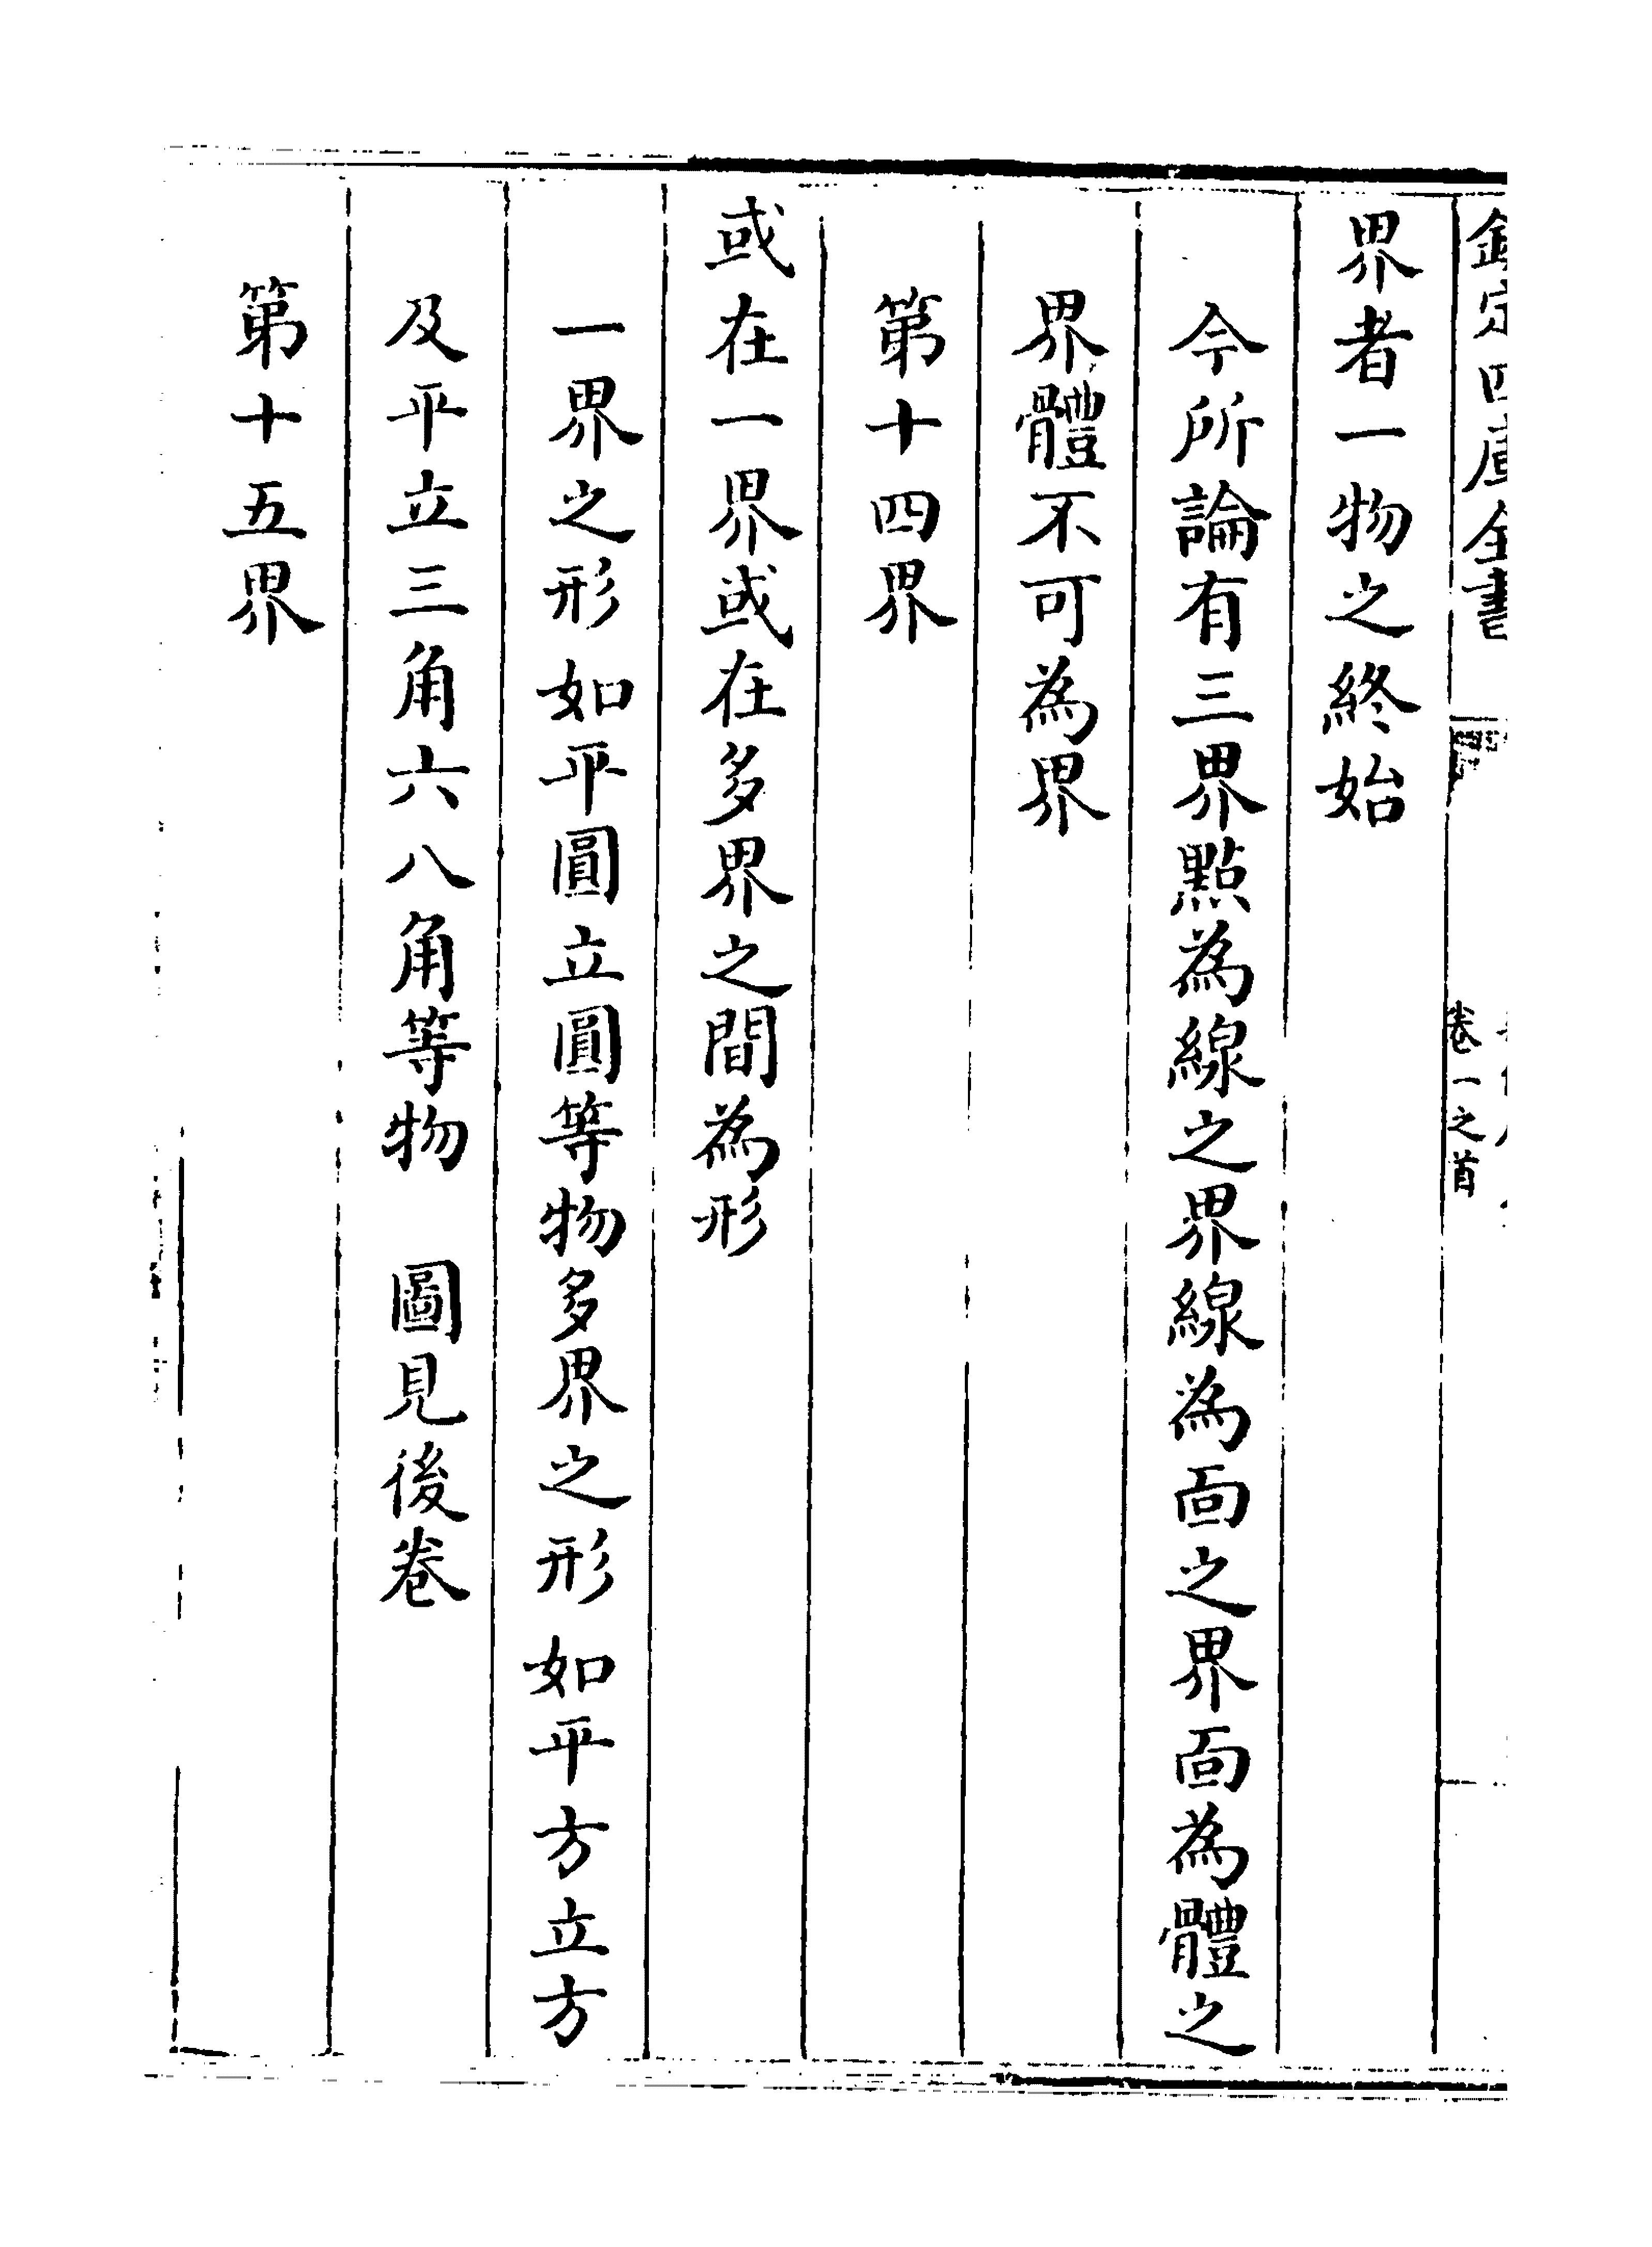 欽定四庫全書
卷一之首
界者一物之終始
今所論有三界點為線之界線為面之界面為體之
界體不可為界
第十四界
或在一界或在多界之間為形
一界之形如平圓立圓等物多界之形如平方立方
及平立三角六八角等物　圖見後卷
第十五界